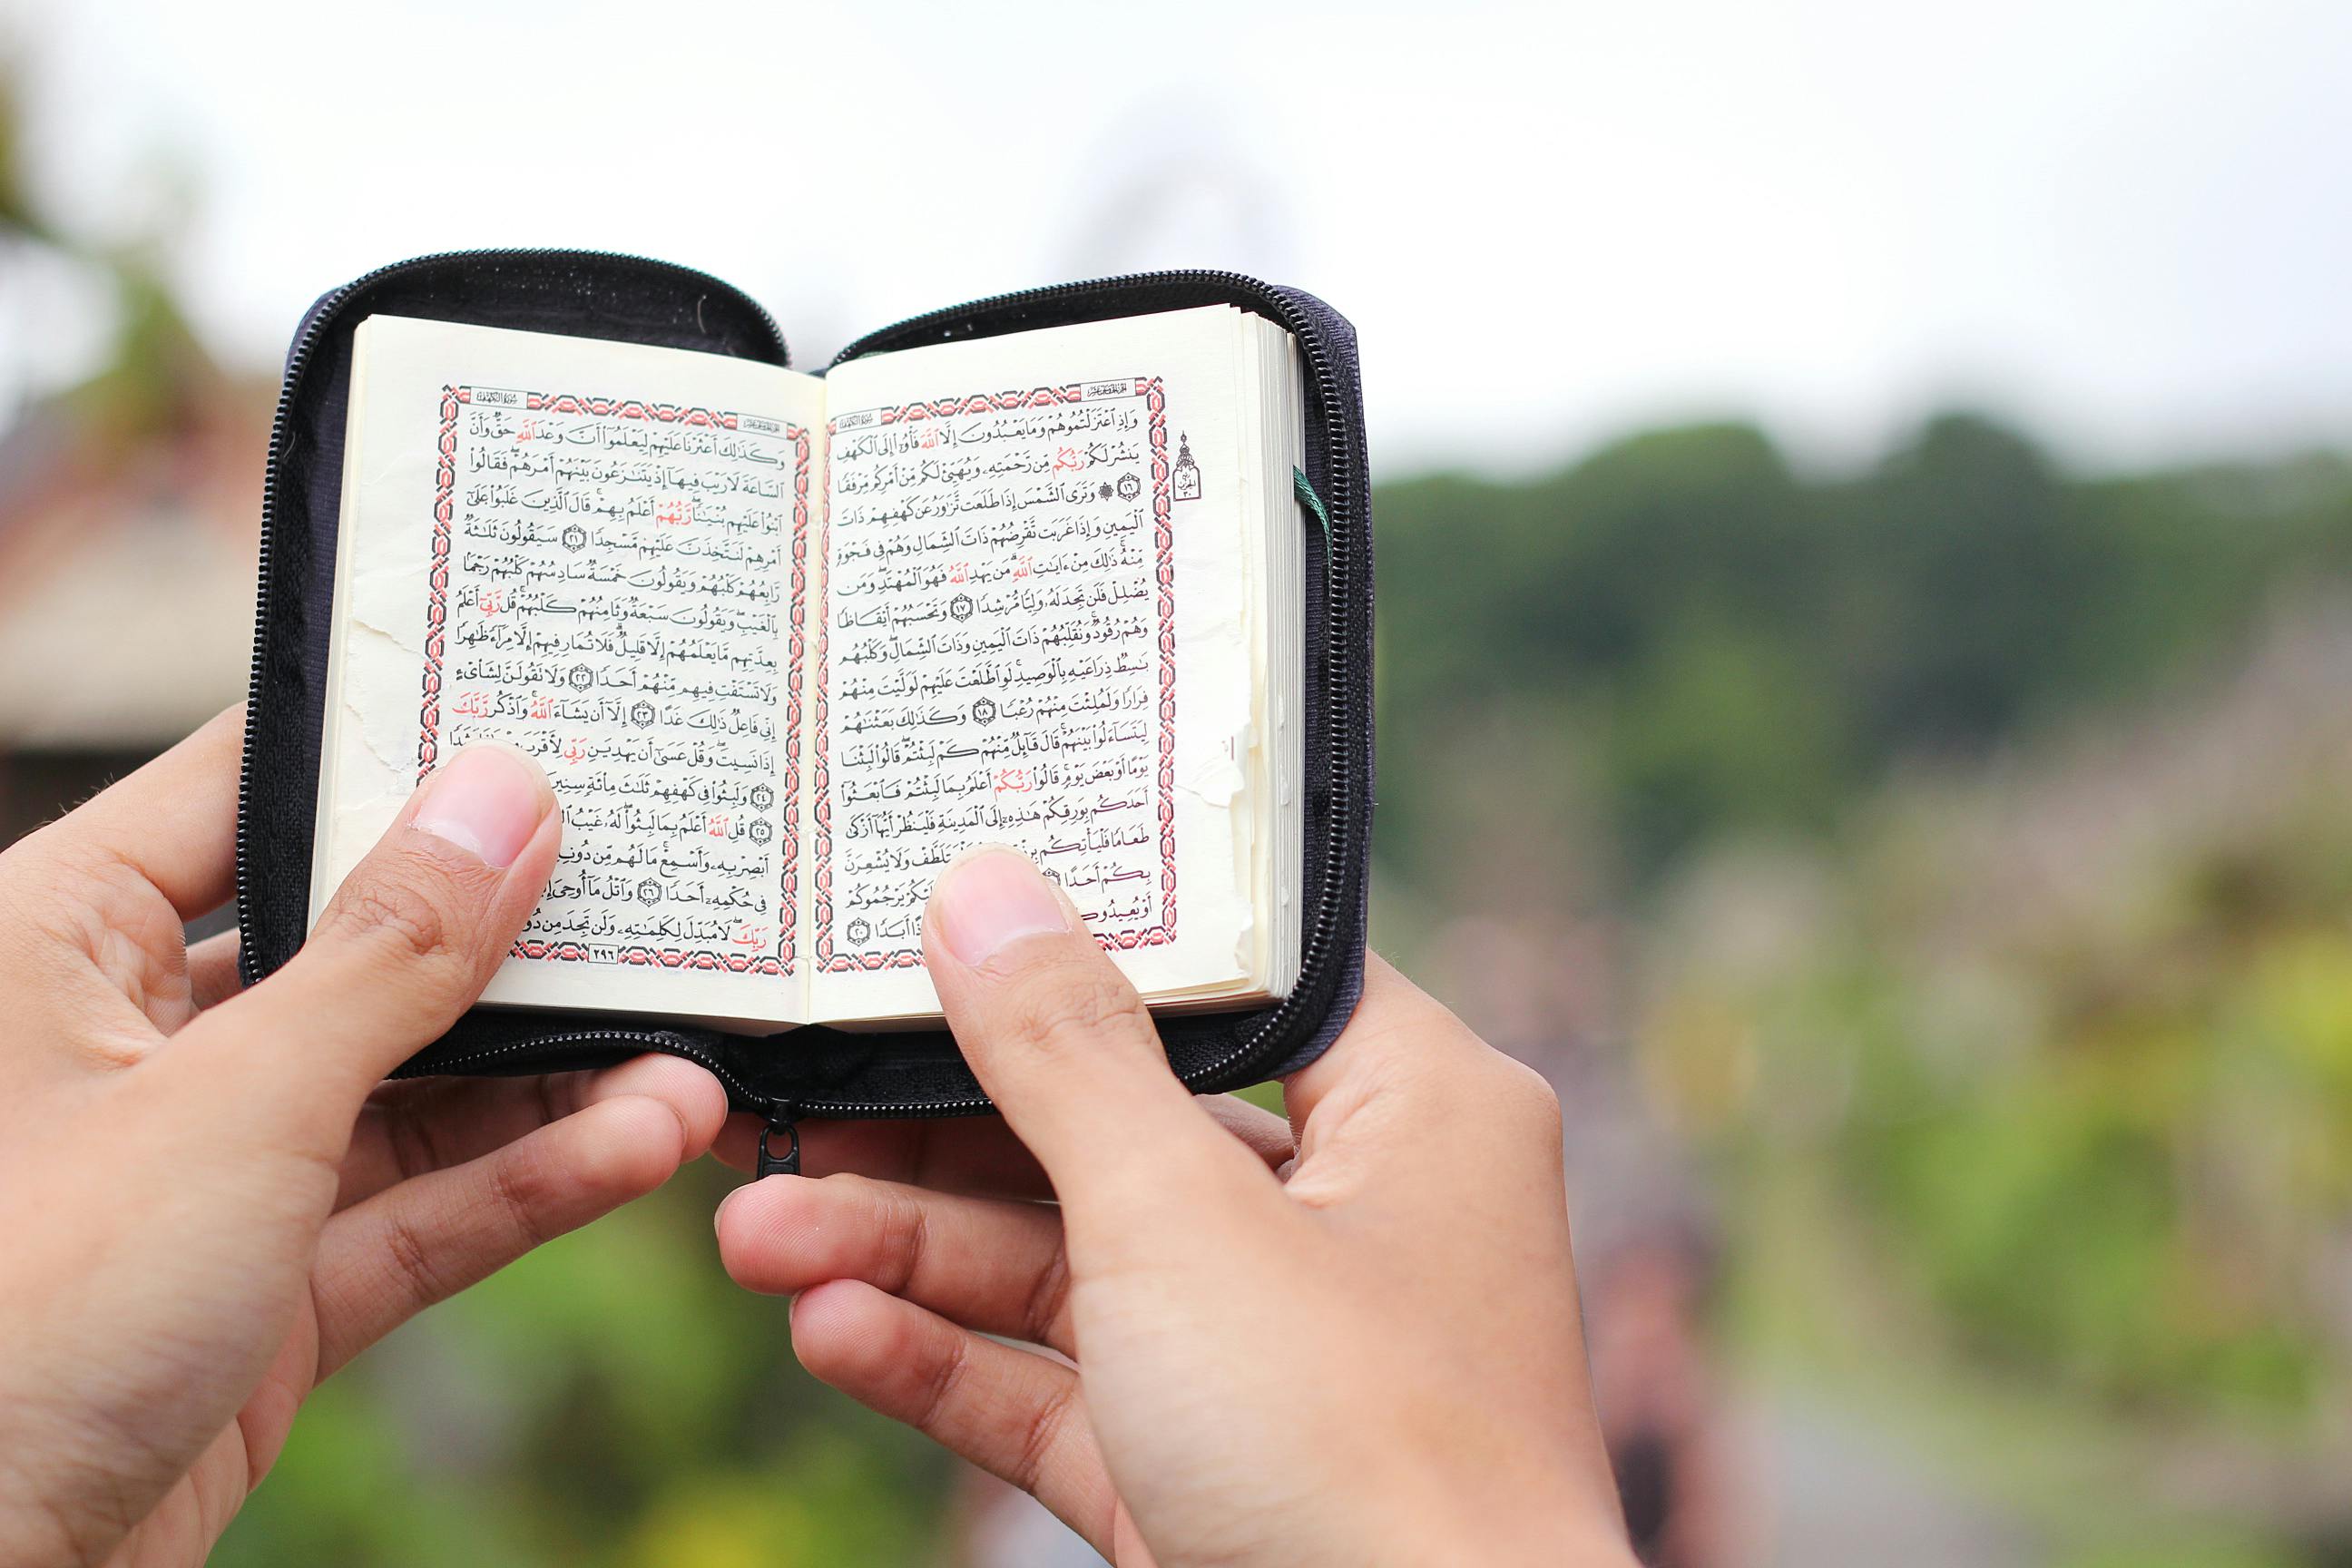 سُورَةُ الكَهْفِ
وَإِذِ ٱعْتَزَلْتُمُوهُمْ وَمَا يَعْبُدُونَ إِلَّا ٱللَّهَ فَأْوُۥٓا۟ إِلَى ٱلْكَهْفِ
يَنشُرْ لَكُمْ رَبُّكُم مِّن رَّحْمَتِهِۦ وَيُهَيِّئْ لَكُم مِّنْ أَمْرِكُم مِّرْفَقًا
١٦ ۞ وَتَرَى ٱلشَّمْسَ إِذَا طَلَعَت تَّزَٰوَرُ عَن كَهْفِهِمْ ذَاتَ
ٱلْيَمِينِ وَإِذَا غَرَبَت تَّقْرِضُهُمْ ذَاتَ ٱلشِّمَالِ وَهُمْ فِى فَجْوَةٍ
مِّنْهُ ۚ ذَٰلِكَ مِنْ ءَايَٰتِ ٱللَّهِ ۗ مَن يَهْدِ ٱللَّهُ فَهُوَ ٱلْمُهْتَدِ ۖ وَمَن
يُضْلِلْ فَلَن تَجِدَ لَهُۥ وَلِيًّا مُّرْشِدًا ١٧ وَتَحْسَبُهُمْ أَيْقَاظًا
وَهُمْ رُقُودٌ ۚ وَنُقَلِّبُهُمْ ذَاتَ ٱلْيَمِينِ وَذَاتَ ٱلشِّمَالِ ۖ وَكَلْبُهُم
بَٰسِطٌ ذِرَاعَيْهِ بِٱلْوَصِيدِ ۚ لَوِ ٱطَّلَعْتَ عَلَيْهِمْ لَوَلَّيْتَ مِنْهُمْ
فِرَارًا وَلَمُلِئْتَ مِنْهُمْ رُعْبًا ١٨ وَكَذَٰلِكَ بَعَثْنَٰهُمْ
لِيَتَسَآءَلُوا۟ بَيْنَهُمْ ۚ قَالَ قَآئِلٌ مِّنْهُمْ كَمْ لَبِثْتُمْ ۖ قَالُوا۟ لَبِثْنَا
يَوْمًا أَوْ بَعْضَ يَوْمٍ ۚ قَالُوا۟ رَبُّكُمْ أَعْلَمُ بِمَا لَبِثْتُمْ فَٱبْعَثُوٓا۟
أَحَدَكُم بِوَرِقِكُمْ هَٰذِهِۦٓ إِلَى ٱلْمَدِينَةِ فَلْيَنظُرْ أَيُّهَآ أَزْكَىٰ
طَعَامًا فَلْيَأْتِكُم بِرِزْ تَلَطَّفْ وَلَا يُشْعِرَنَّ
بِكُمْ أَحَدًا يْكُمْ يَرْجُمُوكُمْ
أَوْ يُعِيدُوكُ ذًا أَبَدًا ٢٠
سُورَةُ الكَهْفِ
وَكَذَٰلِكَ أَعْثَرْنَا عَلَيْهِمْ لِيَعْلَمُوٓا۟ أَنَّ وَعْدَ ٱللَّهِ حَقٌّ وَأَنَّ
ٱلسَّاعَةَ لَا رَيْبَ فِيهَآ إِذْ يَتَنَٰزَعُونَ بَيْنَهُمْ أَمْرَهُمْ ۖ فَقَالُوا۟
ٱبْنُوا۟ عَلَيْهِم بُنْيَٰنًا ۖ رَّبُّهُمْ أَعْلَمُ بِهِمْ ۚ قَالَ ٱلَّذِينَ غَلَبُوا۟ عَلَىٰٓ
أَمْرِهِمْ لَنَتَّخِذَنَّ عَلَيْهِم مَّسْجِدًا ٢١ سَيَقُولُونَ ثَلَٰثَةٌ
رَّابِعُهُمْ كَلْبُهُمْ وَيَقُولُونَ خَمْسَةٌ سَادِسُهُمْ كَلْبُهُمْ رَجْمًۢا
بِٱلْغَيْبِ ۖ وَيَقُولُونَ سَبْعَةٌ وَثَامِنُهُمْ كَلْبُهُمْ ۚ قُل رَّبِّىٓ أَعْلَمُ
بِعِدَّتِهِم مَّا يَعْلَمُهُمْ إِلَّا قَلِيلٌ ۗ فَلَا تُمَارِ فِيهِمْ إِلَّا مِرَآءً ظَٰهِرًا
وَلَا تَسْتَفْتِ فِيهِم مِّنْهُمْ أَحَدًا ٢٢ وَلَا تَقُولَنَّ لِشَا۟ىْءٍ
إِنِّى فَاعِلٌ ذَٰلِكَ غَدًا ٢٣ إِلَّآ أَن يَشَآءَ ٱللَّهُ ۚ وَٱذْكُر رَّبَّكَ
إِذَا نَسِيتَ ۖ وَقُلْ عَسَىٰٓ أَن يَهْدِيَنِ رَبِّى لِأَقْرَبَ
٢٤ وَلَبِثُوا۟ فِى كَهْفِهِمْ ثَلَٰثَ مِا۟ئَةٍ سِنِينَ
٢٥ قُلِ ٱللَّهُ أَعْلَمُ بِمَا لَبِثُوا۟ ۖ لَهُۥ غَيْبُ
أَبْصِرْ بِهِۦ وَأَسْمِعْ ۚ مَا لَهُم مِّن دُونِهِ
فِى حُكْمِهِۦٓ أَحَدًا ٢٦ وَٱتْلُ مَآ أُوحِىَ
رَبِّكَ ۖ لَا مُبَدِّلَ لِكَلِمَٰتِهِۦ وَلَن تَجِدَ مِن دُو
٢٩٦